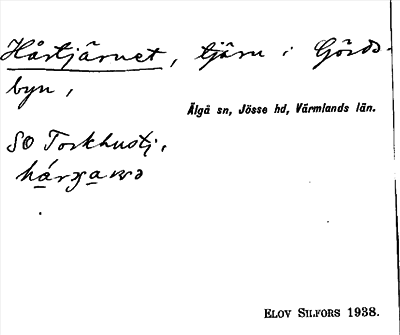 Hårtjärnet, tjärn i Gårds-
byn,
Älgå sn, Jösse hd, Värmlands län.
SO Torkhustj.
ELOV SILFORS 1938.